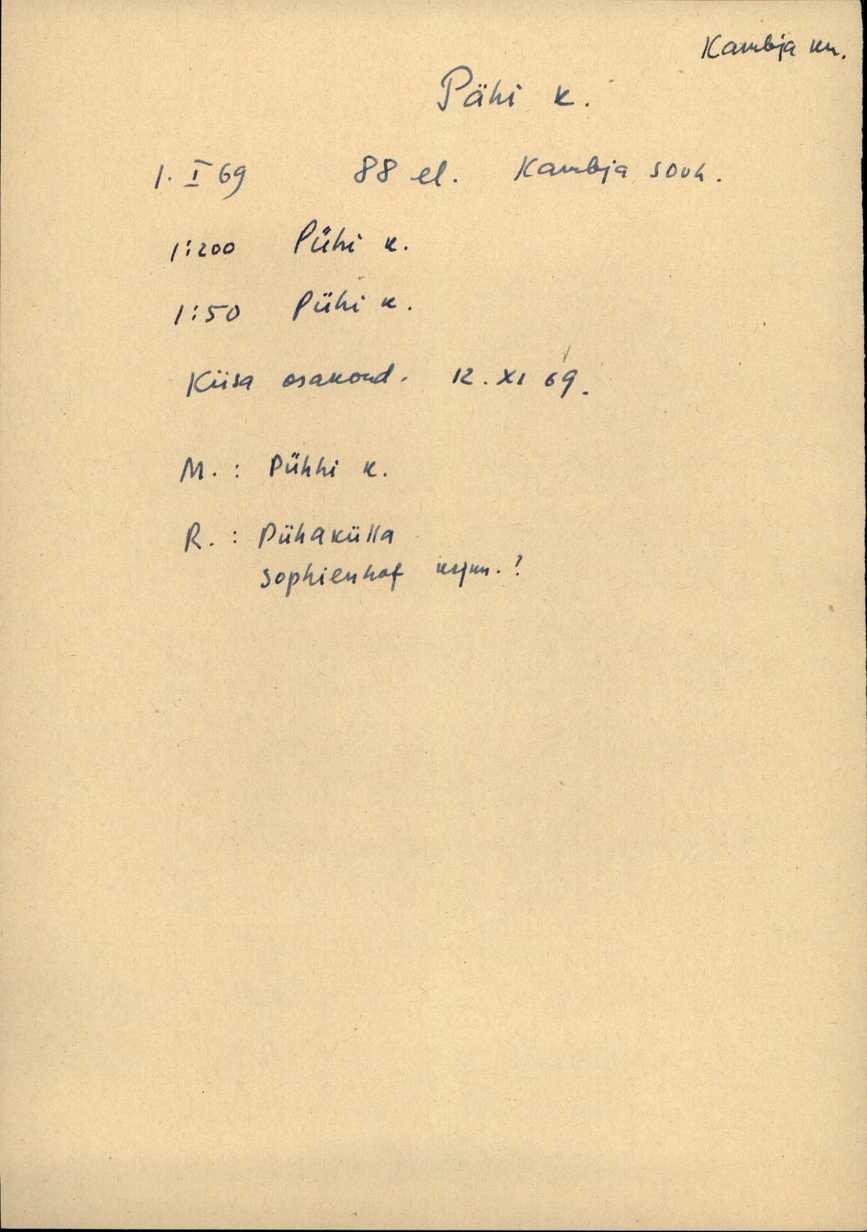 Kambja kn.
Pähi k.
1. I 69 88 el. Kambja sovh.
1:200 Pühi k.
1:50 Pühi k.
Kiisa osakond. 12. XI 69.
M. : Pühhi k.
R. : Pühakülla
Sophienhof